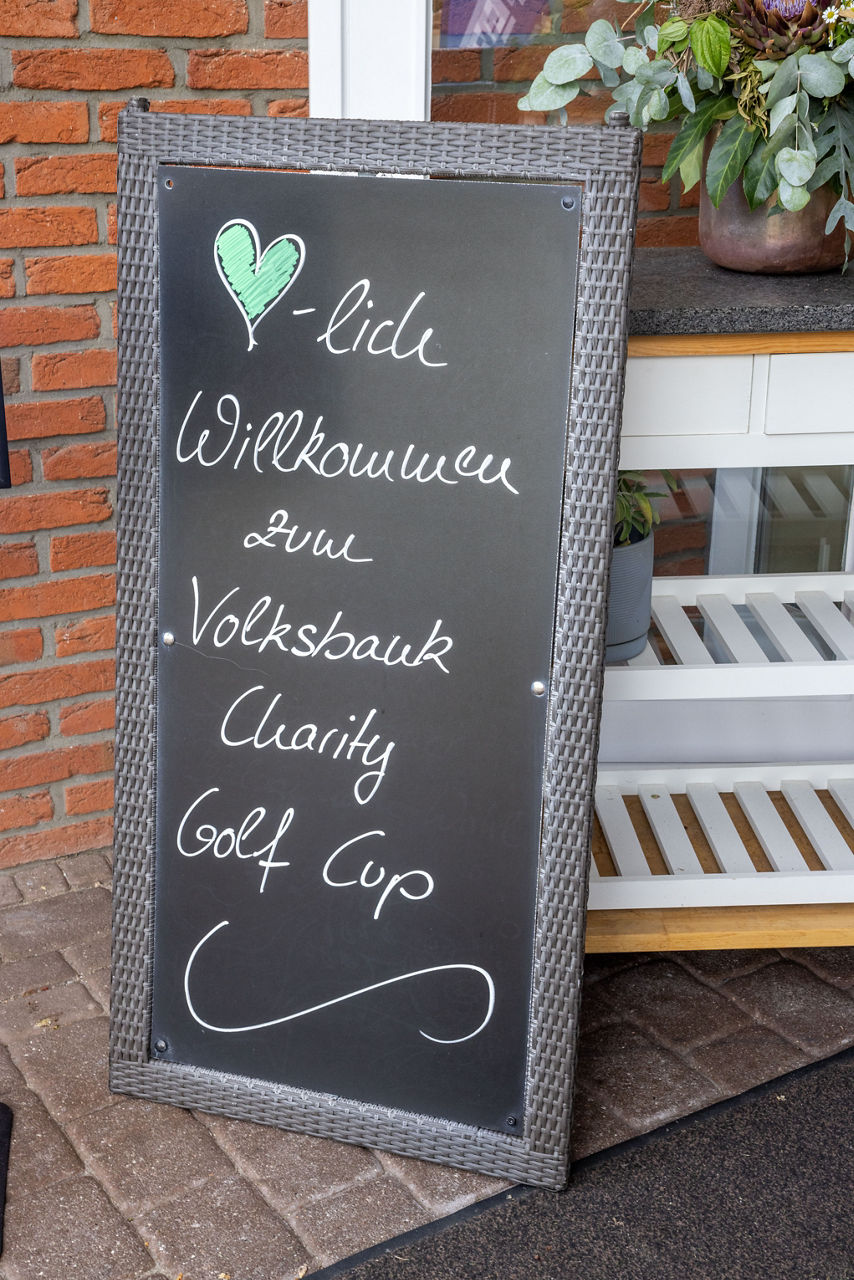 -lich
Willkommen
zum
Volksbank
Charity
Golf Cup